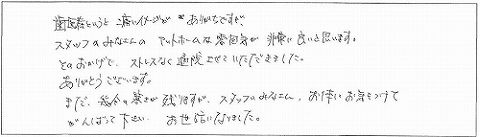 歯医者というと 痛いイメージが ありがちですが、
スタッフのみなさんの アットホームな 雰囲気が 非常に良いと思います。
そのおかげで、ストレスなく通院させていただきました。
ありがとうございます。
まだ、 暑さが 残りますが、スタッフのみなさん、お体にお気をつけて
がんばって下さい。 お世話になりました。